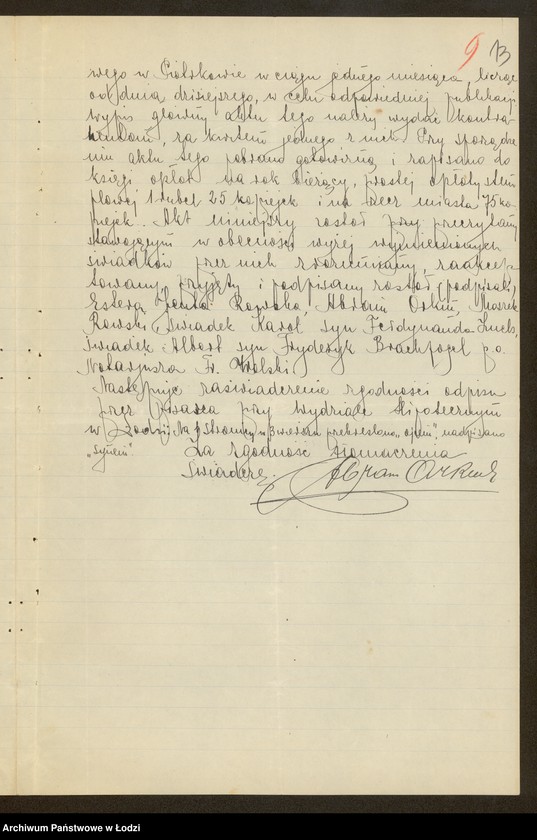 9 13
wego w Piotrkowie w ciągu jednego miesiąca, licząc
od dnia dzisiejszego, w celu odpowiedniej publikacji
wypis główny aktu tego należy wydać kontra-
hentom, za kwitem jednego z nich. Przy sporządze
niu aktu tego pobrano gotowizną i zapisano do
księgi opłat na rok bieżący, prostej opłaty stem
plowej 1 rubel 25 kopiejek i na rzecz miasta 75 ko
piejek. Akt niniejszy został przy przeczytany
stawającym w obecności wyżej wymienionych
świadków przez nich zrozumiany, zaakcep-
towany, przyjęty i podpisany został (podpisali)
Estera Jenta Rowska, Abram Orkin, Moszek
Rowski, Świadek Karol syn Ferdynanda
świadek Albert syn Fryderyk Brachfogel p.o.
Notarjusza Fr. Wolski
Następuje zaświadczenie zgodności odpisu
przez pisarza przy wydziale Hipotecznym
w Łodzi. Na stronicy w 3 wierszu przekreślono „ojcem", nadpisano
„synem" Za zgodność tłomaczenia
Świadczę. Abram Orkin
Archiwum Państwowe w Łodzi